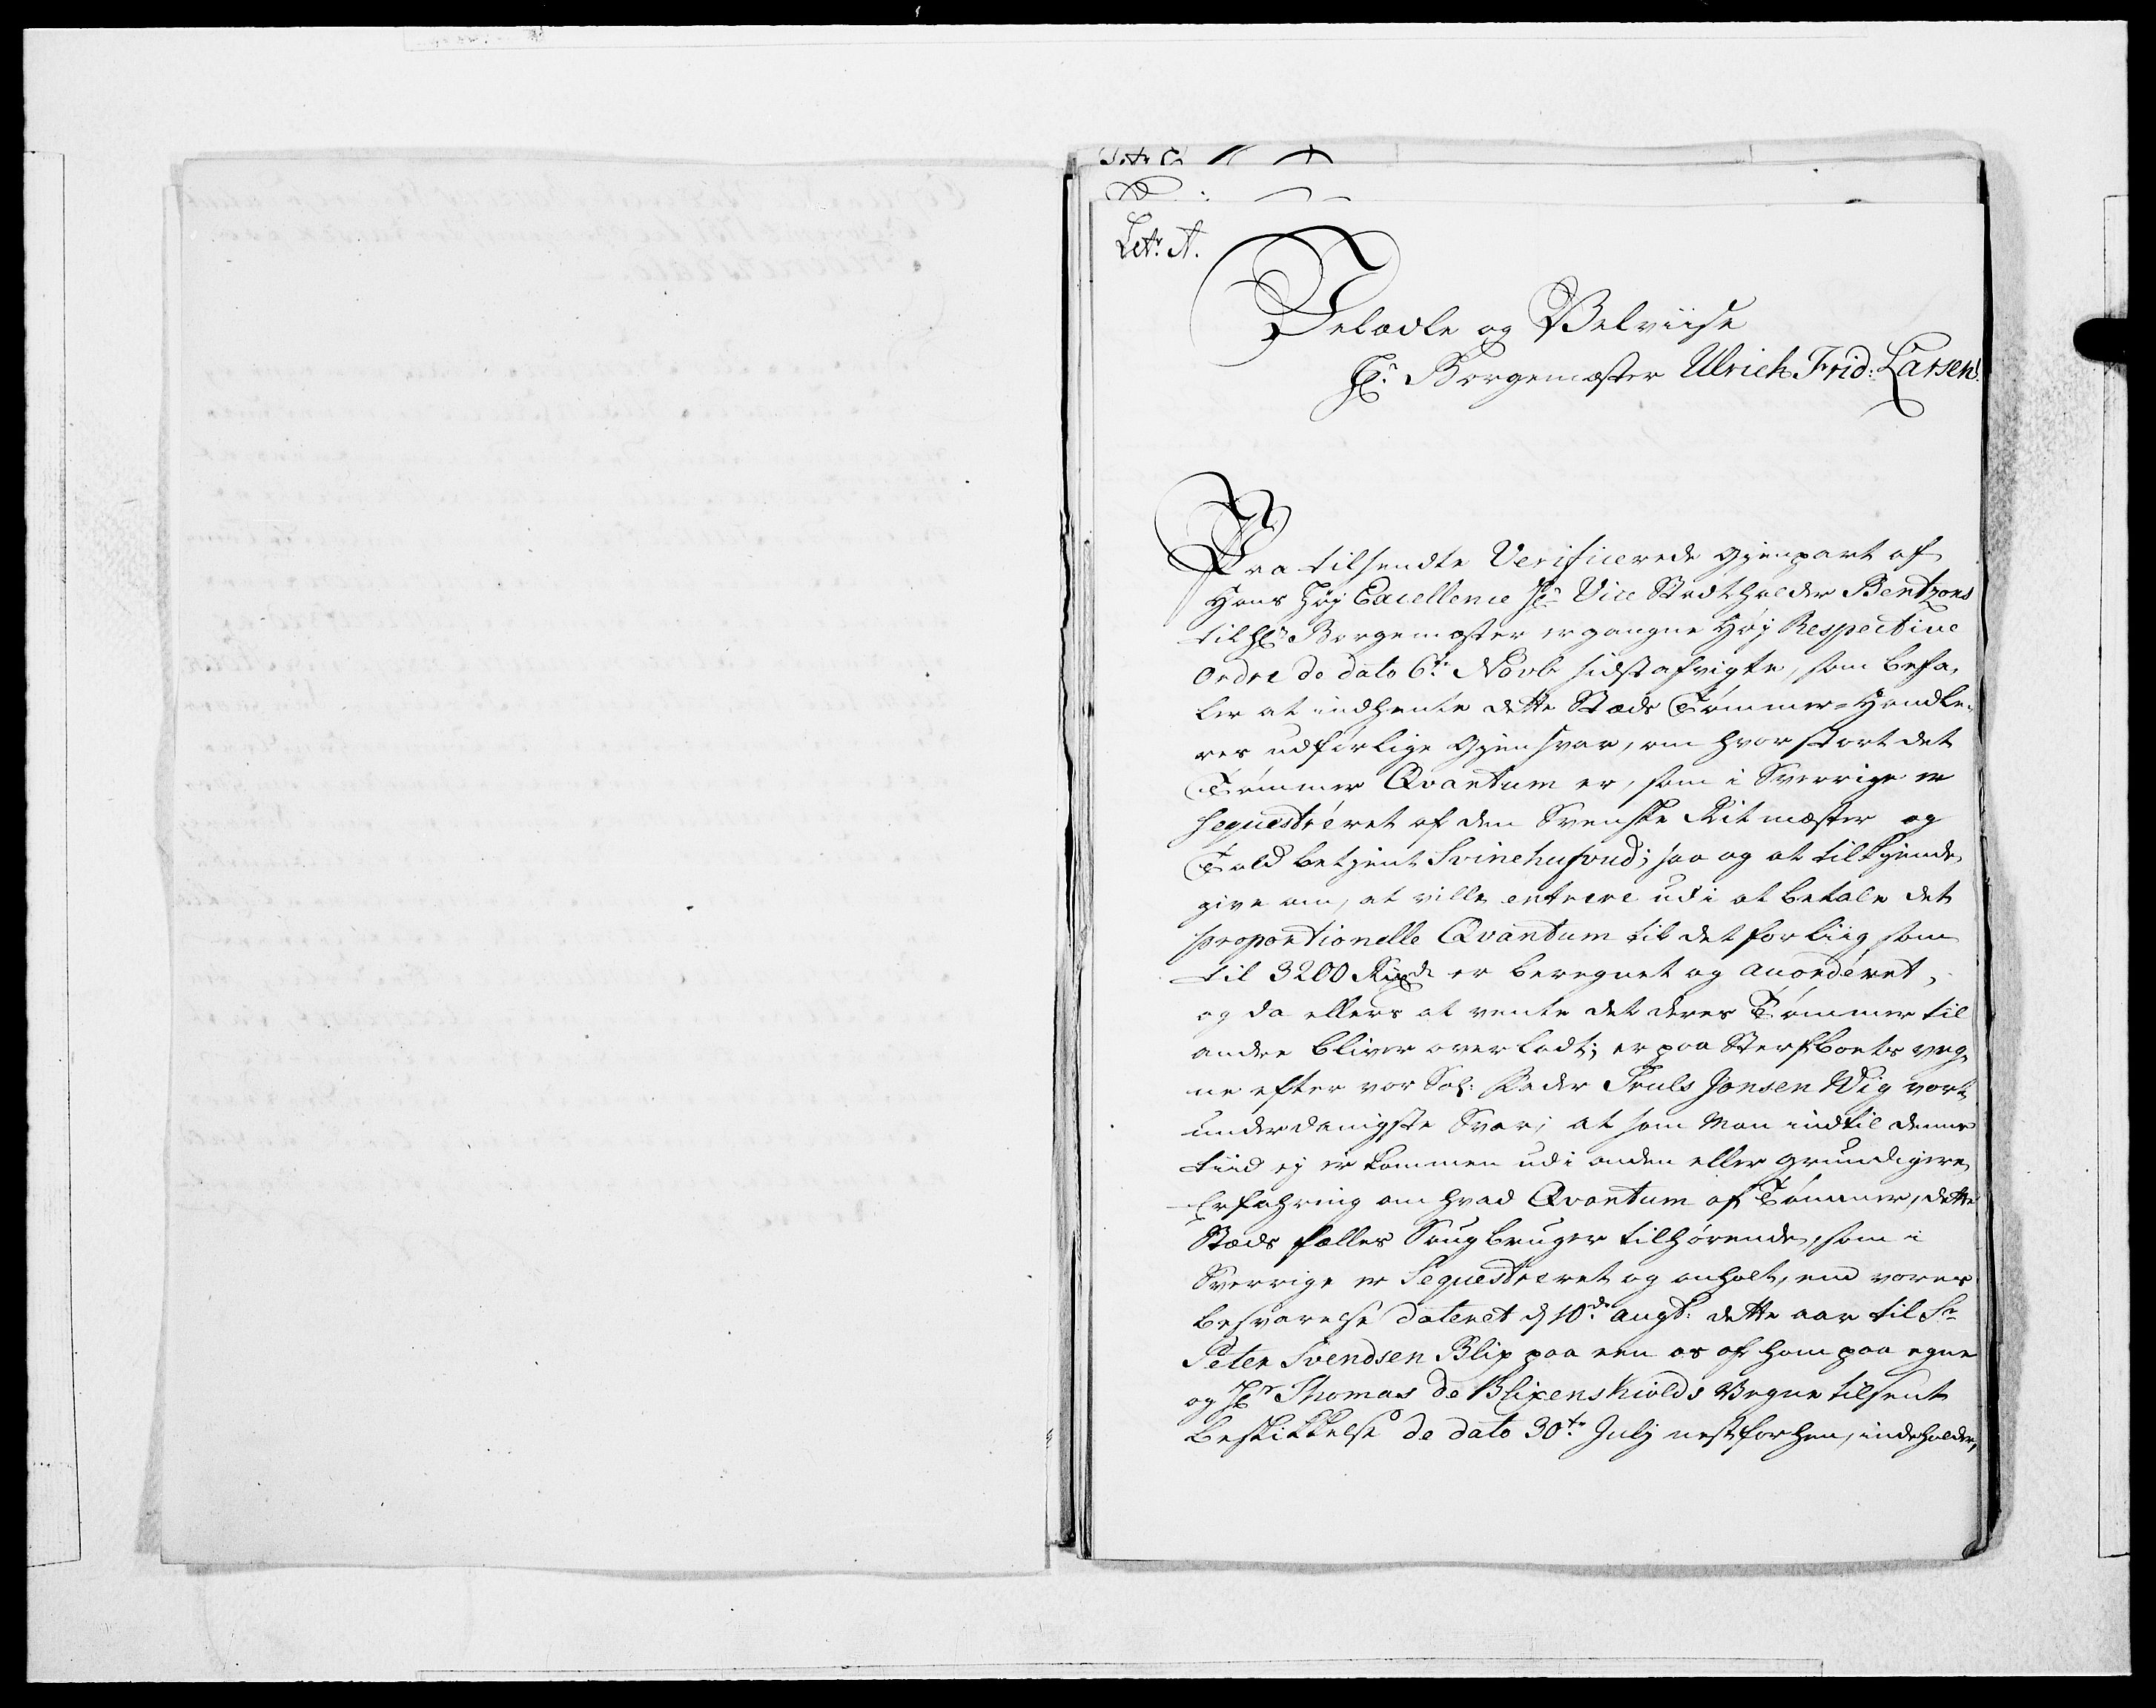 Litr. A.
Velædle og Velviise
Hr. Borgemæster Ulrich Frid: Larsen.
Paa tilsendte Verificerede gienpart af
Hans Høy Excellence Hr Vice Stadtholder Bentzons
til Hr Borgemæster ergangne Høy Respective
Ordre de dato 6te Novb sidstafvigte, som befa-
ler at indhente dette Stæds Tømmer-Handle-
res udførlige giensvar, om hvor stort det
Tømmer Qvantum er, som i Sverrige er
seqvestréret af den Svenske Ritmæster og
Toldbetient Svinehufvud; saa og at tilkiende
give om, at ville entrere udi at betale det
proportionelle Qvantum til det forliig som
til 3200 Rixd. er beregnet og
og da ellers at vente det deres Tømmer til
andre bliver overladt; er paa Sterfboets veg-
ne efter vor Sal: Fader Truls Jonsen Wiig vort
underdanigste Svar; at som Man indtil denne
tiid ej er kommen udi anden eller grundigere
Erfahring om hvad Qvantum af Tømmer, dette
Stæds fælles Saugbruger tilhørende, som i
Sverrige er Seqvestreret og anholt, end vores
besvarelse dateret d 10de Augt: dette aar til Sr
Peter Svendsen Blix paa een os af ham paa egne
og Hr Thomas de Blixenskiolds Vegne tilsent
beskikkelse de dato 30te Julj nestforhen, indeholder,